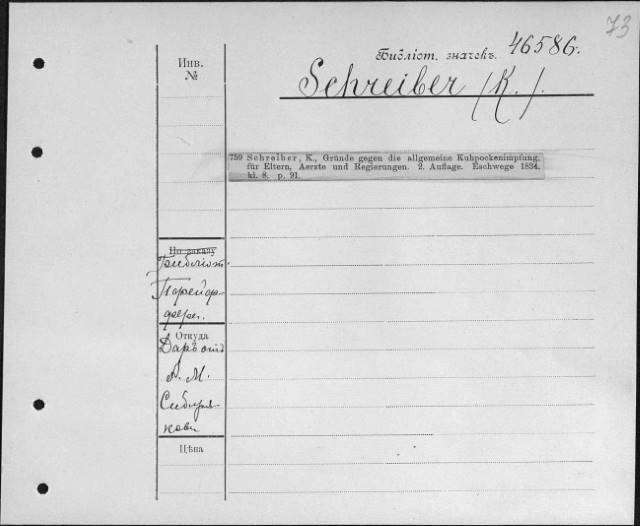 73
Библіот. значекъ. 46586.
Инв.
№
Schreiber (K.).
759 Schreiber, K., Gründe gegen die allgemeine Kuhpockenimpfung,
für Eltern, Aerzte und Regierungen. 2. Auflage. Eschwege 1834.
kl. 8. p. 91.
По заказу
Библіот.
Откуда
Даръ отъ
А. М.
Сибиря-
кова
Цѣна